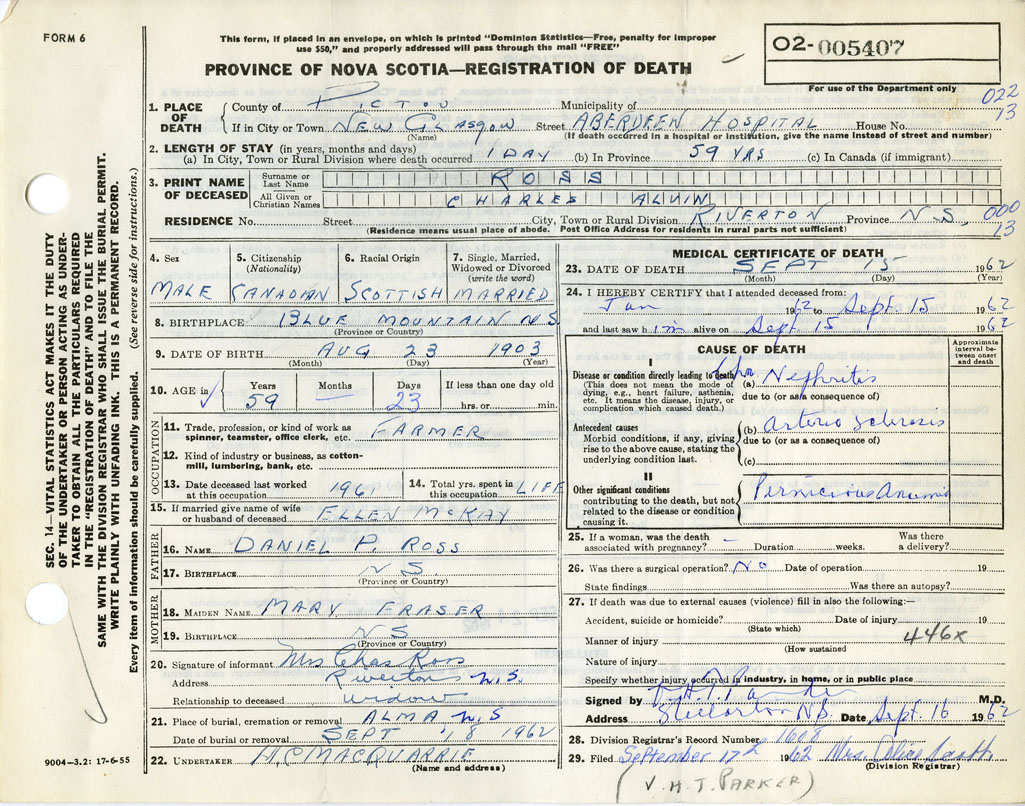 FORM 6
This form, if placed in an envelope, on which is printed "Dominion Statistics—Free, penalty for improper
use $50," and properly addressed will pass through the mail "FREE"
O2-005407
For use of the Department only
PROVINCE OF NOVA SCOTIA—REGISTRATION OF DEATH
022
13
1. PLACE OF DEATH County of PICTOU Municipality of
If in City or Town NEW GLASGOW Street ABERDEEN HOSPITAL House No.
(Name) (If death occurred in a hospital or institution, give the name instead of street and number)
2. LENGTH OF STAY (in years, months and days)
(a) In City, Town or Rural Division where death occurred 1 DAY (b) In Province 59 YRS (c) In Canada (if immigrant)
3. PRINT NAME OF DECEASED
Surname or Last Name ROSS
All Given or Christian Names CHARLES ALVIN
RESIDENCE No. Street City, Town or Rural Division RIVERTON Province N.S,
(Residence means usual place of abode. Post Office Address for residents in rural parts not sufficient)
000
13
4. Sex 5. Citizenship (Nationality) 6. Racial Origin 7. Single, Married, Widowed or Divorced (write the word)
MALE CANADIAN SCOTTISH MARRIED
8. BIRTHPLACE BLUE MOUNTAIN N S
(Province or Country)
9. DATE OF BIRTH AUG 23 1903
(Month) (Day) (Year)
10. AGE in Years Months Days If less than one day old
59 — 23 hrs. or min.
OCCUPATION
11. Trade, profession, or kind of work as spinner, teamster, office clerk, etc. FARMER
12. Kind of industry or business, as cotton-mill, lumbering, bank, etc.
13. Date deceased last worked at this occupation 1961 14. Total yrs. spent in this occupation LIFE
15. If married give name of wife or husband of deceased ELLEN MCKAY
FATHER
16. NAME DANIEL P. ROSS
17. BIRTHPLACE N S.
(Province or Country)
MOTHER
18. MAIDEN NAME MARY FRASER
19. BIRTHPLACE N S
(Province or Country)
20. Signature of informant Mrs Chas Ross
Address Riverton N.S.
Relationship to deceased widow
21. Place of burial, cremation or removal ALMA N.S
Date of burial or removal SEPT 18 1962
22. UNDERTAKER H.C. MACQUARRIE
(Name and address)
MEDICAL CERTIFICATE OF DEATH
23. DATE OF DEATH SEPT 15 1962
(Month) (Day) (Year)
24. I HEREBY CERTIFY that I attended deceased from:
Jan 1962 to Sept. 15 1962
and last saw him alive on Sept. 15 1962
CAUSE OF DEATH
Approximate interval between onset and death
I
Disease or condition directly leading to death
(This does not mean the mode of dying, e.g., heart failure, asthenia, etc. It means the disease, injury, or complication which caused death.)
(a) Nephritis
due to (or as a consequence of)
Antecedent causes
Morbid conditions, if any, giving rise to the above cause, stating the underlying condition last.
(b) Arterio Sclerosis
due to (or as a consequence of)
(c)
II
Other significant conditions
contributing to the death, but not related to the disease or condition causing it.
Pernicious Anemia
25. If a woman, was the death associated with pregnancy? — Duration weeks. Was there a delivery?
26. Was there a surgical operation? No Date of operation 19
State findings Was there an autopsy?
27. If death was due to external causes (violence) fill in also the following:—
Accident, suicide or homicide? Date of injury 19
(State which)
Manner of injury 446x
(How sustained
Nature of injury
Specify whether injury occurred in industry, in home, or in public place
Signed by M.D.
Address Stellarton N.S. Date Sept. 16 1962
28. Division Registrar's Record Number 1608
29. Filed September 17th 1962 Mrs.
(Division Registrar)
(V. H. T. PARKER)
9004-3.2: 17-6-55
SEC. 14—VITAL STATISTICS ACT MAKES IT THE DUTY
OF THE UNDERTAKER OR PERSON ACTING AS UNDER-
TAKER TO OBTAIN ALL THE PARTICULARS REQUIRED
IN THE "REGISTRATION OF DEATH" AND TO FILE THE
SAME WITH THE DIVISION REGISTRAR WHO SHALL ISSUE THE BURIAL PERMIT.
WRITE PLAINLY WITH UNFADING INK. THIS IS A PERMANENT RECORD.
Every item of information should be carefully supplied. (See reverse side for instructions.)